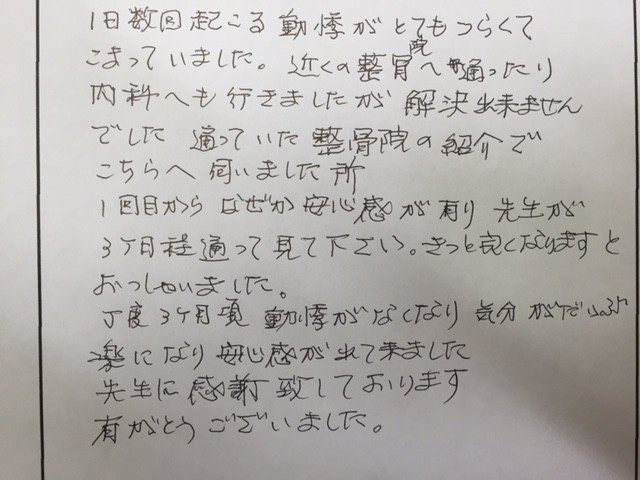 1日数回起こる動悸がとてもつらくて
こまっていました。近くの整骨院へ通ったり
内科へも行きましたが解決出来ません
でした 通っていた整骨院の紹介で
こちらへ伺いました所
1回目からなぜか安心感が有り先生が
3ケ月程通って見て下さい。きっと良くなりますと
おっしゃいました。
丁度3ケ月頃 動悸がなくなり気分がだいぶ
楽になり安心感が出て来ました
先生に感謝致しております
有がとうございました。